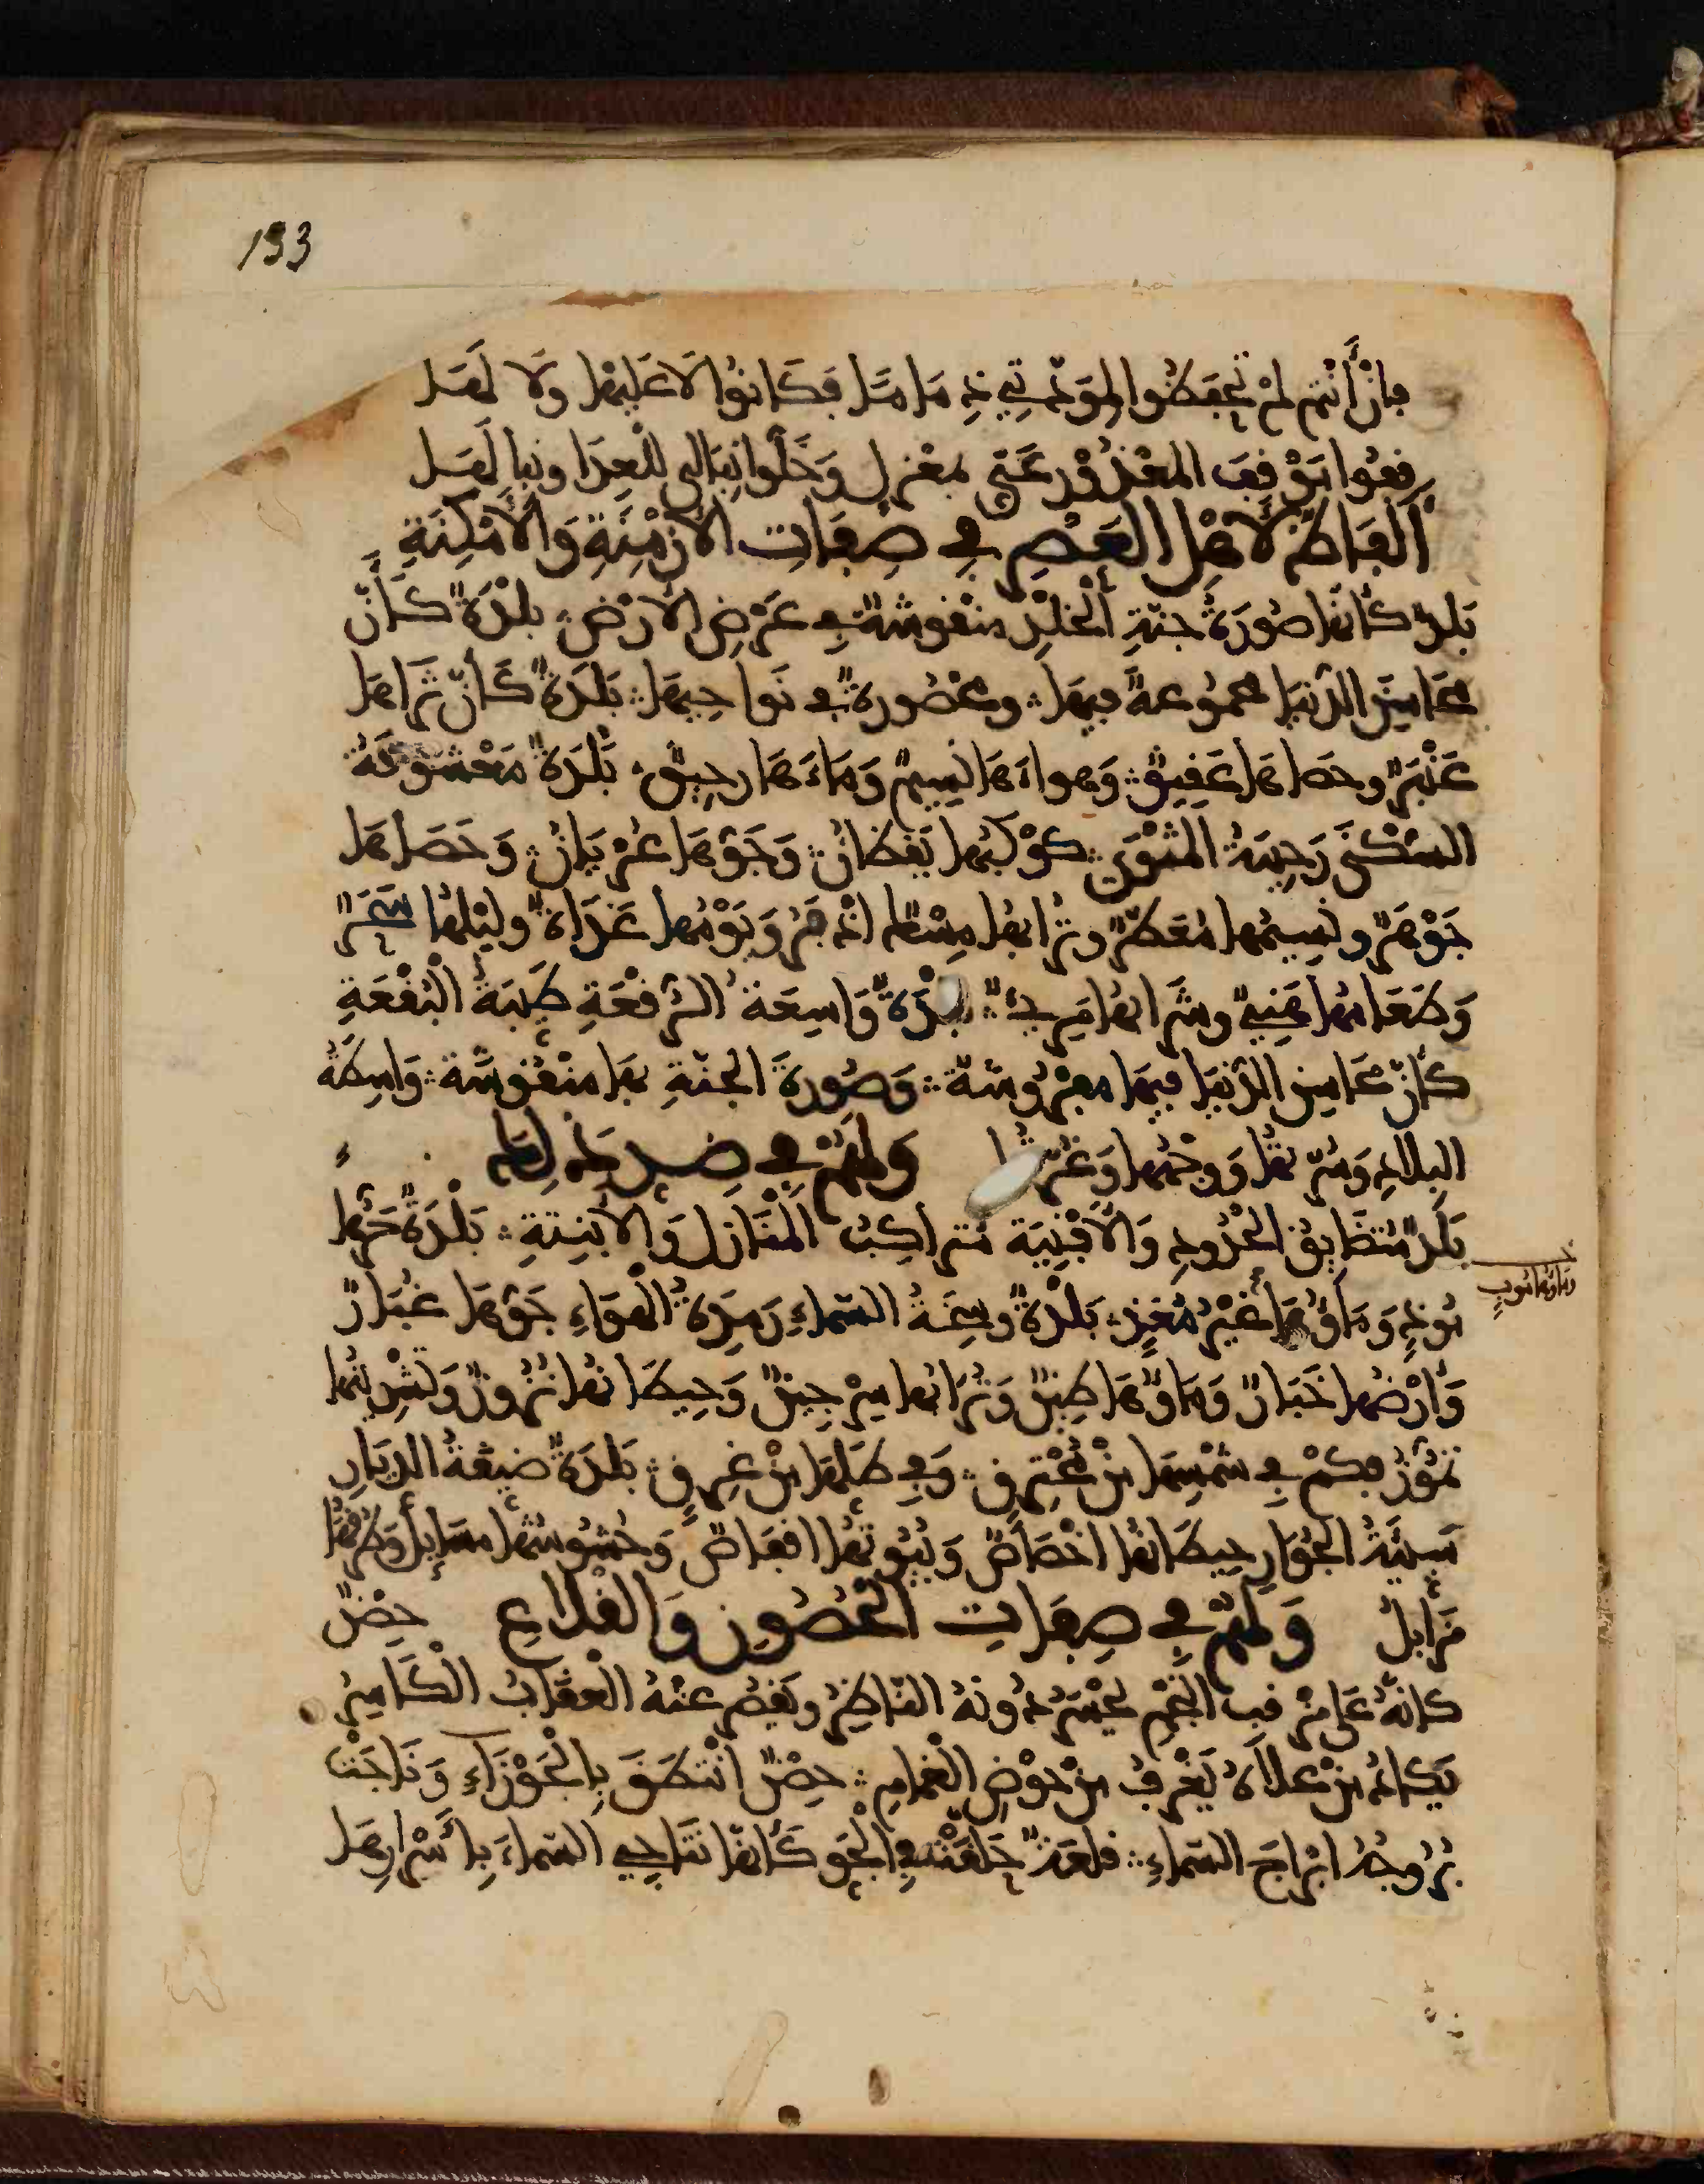 193
فإنْ أنتم لم تحفظوا لمودتي ذماما فكانوا لا عليها ولا لها
قفوا موقف المعذور عني بمعزل وخلوا نبالي للعدا ونبالها
ألفاظ لأهل العصر في صفات الأزمنة والأمكنة
بلد كأنها صورة جنة الخلد منقوشة في عرض الأرض بلدة كأن
محاسن الدنيا مجموعة فيها ومحصورة في نواحيها بلدة كأن ترابها
عنبر وحصاها عقيق وهواءها نسيم وماءها رحيق بلدة معشوقة
السكنى رحيبة المثوى كوكبها يقظان وجوها عريان وحصاها
جوهر ونسيمها معطر وترابها مسك اذفر ويومها غداة وليلها سحر
وطعامها هني وشرابها مري بلدة واسعة الرقعة طيبة البقعة
كأن محاسن الدنيا فيها مفروشة وصورة الجنة بها منقوشة واسطة
البلاد وسرتها ووجهها وغرتها ولهم في ضد ذلك
بلد متضايق الحدود والأفنية متراكب المنازل والأبنية بلدة حرها
يوذي وماؤها غير مغذٍ بلدة وسخة السماء رمدة الهواء جوها غبار
وأرضها خبار وماؤها طين وترابها سرجين وحيطانها نزوز وتشرينها
تموز فكم في شمسها من محترق وفي ظلها من غرق بلدة ضيقة الديار
سيئة الجوار حيطانها اخصاص وبيوتها اقفاص وحشوشها مسايل وطرقها
مزابل ولهم في صفات الحصون والقلاع حصن
كأنه على مرقب النجم يحسر دونه الناظر ويقصر عنه العقاب الكاسر
يكاد من علاه يغرف من حوض الغمام حصن انتطق بالجوزاء وناجت
بروجه ابراج السماء قلعة حلقت في الجو كأنها تناجي السماء بأسرارها